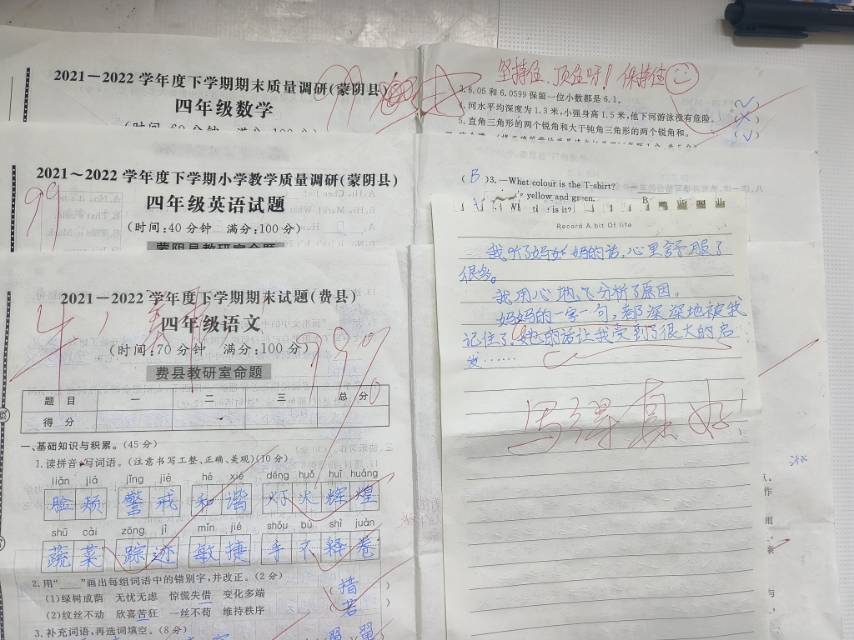 2021－2022 学年度下学期期末质量调研(蒙阴县)
四年级数学
坚持住，顶住呀！保持住
3.6.05 和 6.0599 保留一位小数都是 6.1。
4.河水平均深度为 1.3 米,小强身高 1.5 米,他下河游泳没有危险。(×)
5.直角三角形的两个锐角和大于钝角三角形的两个锐角和。(√)
2021～2022 学年度下学期小学教学质量调研(蒙阴县)
四年级英语试题
99
(时间:40 分钟 满分:100 分)
蒙阴县教研室命题
(B)3.—What colour is the T-shirt?
yellow and green.
is it?
Record A bit Of life
我听了妈妈的话,心里舒服了
很多。
我用心地分析了原因。
妈妈的一字一句,都深深地被我
记住了,她的话让我受到了很大的启
发……
写得真好
2021－2022 学年度下学期期末试题(费县)
四年级语文
(时间:70 分钟 满分:100 分)
99%
费县教研室命题
题 目 一 二 三 总 分
得 分
一、基础知识与积累。(45 分)
1.读拼音,写词语。(注意书写工整、正确、美观)(10 分)
jiǎn jiá jǐng jiè hé xié dēng huǒ huī huáng
脸颊 警戒 和谐 灯火辉煌
shū cài zōng jì mǐn jié shǒu bù shì juàn
蔬菜 踪迹 敏捷 手不释卷
2.用“ ”画出每组词语中的错别字,并改正。(2 分)
(1)绿树成荫 无忧无虑 惊慌失借 变化多端 (措)
(2)纹丝不动 欣喜苦狂 一丝不苟 维持秩序 (若)
3.补充词语,再选词填空。(8 分)